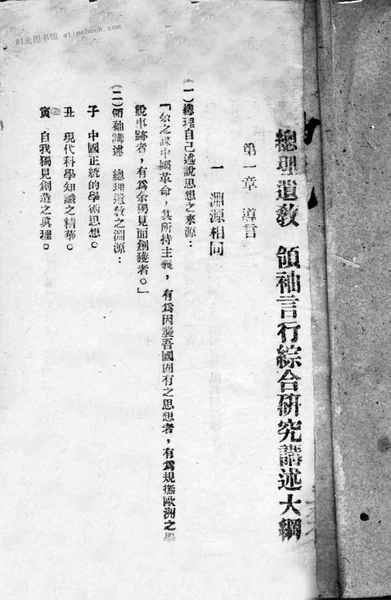 總理遺敎 領袖言行綜合研究講述大綱
第一章 導言
一 淵源相同
(一)總理自己述說思想之來源：
「余之謀中國革命，其所持主義，有爲因襲吾國固有之思想者，有爲規撫歐洲之學
說事跡者，有爲余獨見而創獲者。」
(二)領袖講述 總理遺敎之淵源：
子 中國正統的學術思想。
丑 現代科學知識之精華。
寅 自我獨見創造之眞理。
时光图书馆